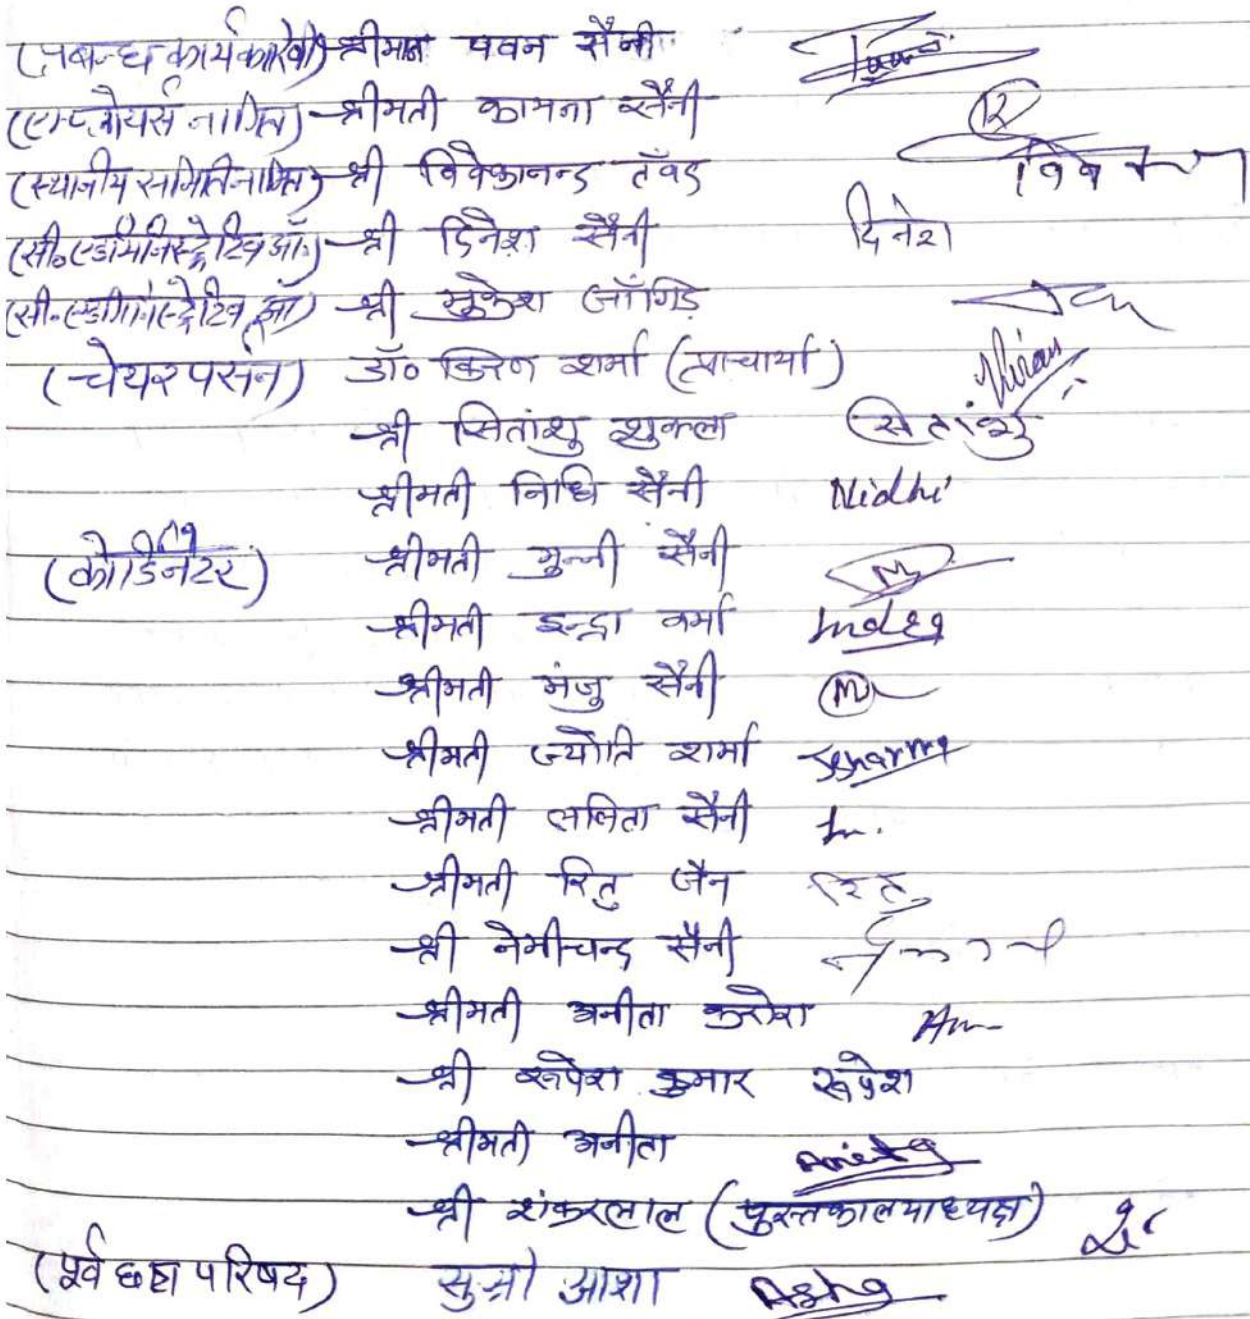 (प्रबन्ध कार्यकारिणी) श्रीमान पवन सैनी
(एम्प्लोयर्स नामित) श्रीमती कामना सैनी
(स्थानीय समिति नामित) श्री विवेकानन्द तँवर विवेकानन्द
(सी० एडमिनिस्ट्रेटिव ऑ०) श्री दिनेश सैनी दिनेश
(सी० एडमिनिस्ट्रेटिव ऑ) श्री मुकेश जाँगिड़
(चेयरपर्सन) डॉ० किरण शर्मा (प्राचार्या) Kiran
श्री सितांशु शुक्ला सितांशु
श्रीमती निधि सैनी Nidhi
(कोर्डिनेटर) श्रीमती मुन्नी सैनी M
श्रीमती इन्द्रा वर्मा Indra
श्रीमती मंजु सैनी M
श्रीमती ज्योति शर्मा JSharma
श्रीमती ललिता सैनी
श्रीमती रितु जैन रितु
श्री नेमीचन्द सैनी
श्रीमती अनीता
श्री रूपेश कुमार रूपेश
श्रीमती अनीता Anieta
श्री शंकरलाल (पुस्तकालयाध्यक्ष)
(पूर्व छात्रा परिषद) सुश्री आशा Asha